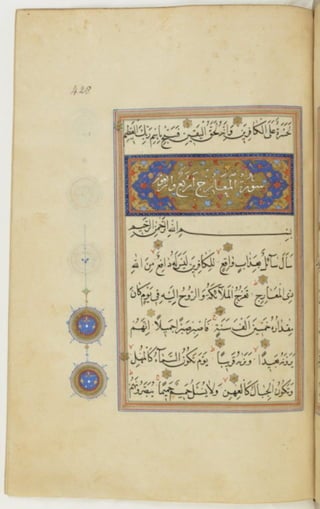 428
لَحَسْرَةٌ عَلَى الْكَافِرِينَ وَإِنَّهُ لَحَقُّ الْيَقِينِ فَسَبِّحْ بِاسْمِ رَبِّكَ الْعَظِيمِ
سورة المعارج اربع
بِسْمِ اللهِ الرَّحْمٰنِ الرَّحِيمِ
سَأَلَ سَائِلٌ بِعَذَابٍ وَاقِعٍ لِلْكَافِرِينَ لَيْسَ لَهُ دَافِعٌ مِنَ اللهِ
ذِي الْمَعَارِجِ تَعْرُجُ الْمَلَائِكَةُ وَالرُّوحُ إِلَيْهِ فِي يَوْمٍ كَانَ
مِقْدَارُهُ خَمْسِينَ أَلْفَ سَنَةٍ فَاصْبِرْ صَبْرًا جَمِيلًا إِنَّهُمْ
يَرَوْنَهُ بَعِيدًا وَنَرَاهُ قَرِيبًا يَوْمَ تَكُونُ السَّمَاءُ كَالْمُهْلِ
وَتَكُونُ الْجِبَالُ كَالْعِهْنِ وَلَا يَسْئَلُ حَمِيمٌ حَمِيمًا يُبَصَّرُونَهُمْ